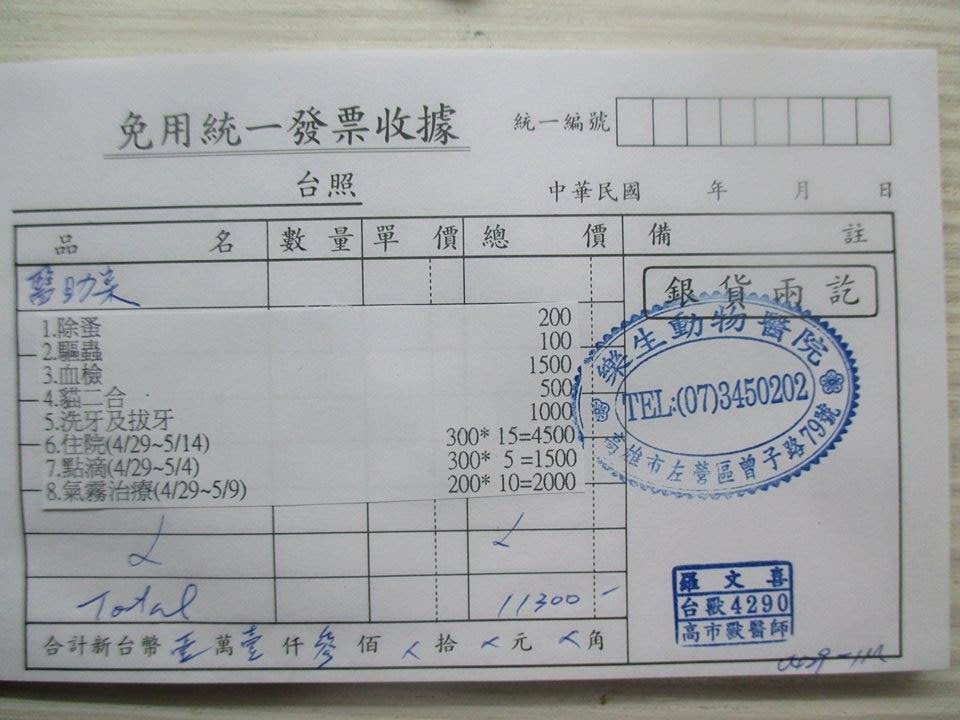 免用統一發票收據
統一編號
台照
中華民國 年 月 日
品名 數量 單價 總價 備註
醫助米
銀貨兩訖
1.除蚤 200
2.驅蟲 100
3.血檢 1500
4.貓二合 500
5.洗牙及拔牙 1000
6.住院(4/29~5/14) 300* 15=4500
7.點滴(4/29~5/4) 300* 5=1500
8.氣霧治療(4/29~5/9) 200* 10=2000
樂生動物醫院
TEL:(07)3450202
高雄市左營區曾子路79號
Total 11300-
合計新台幣壹萬壹仟參佰 拾 元 角
羅文喜
台獸4290
高市獸醫師